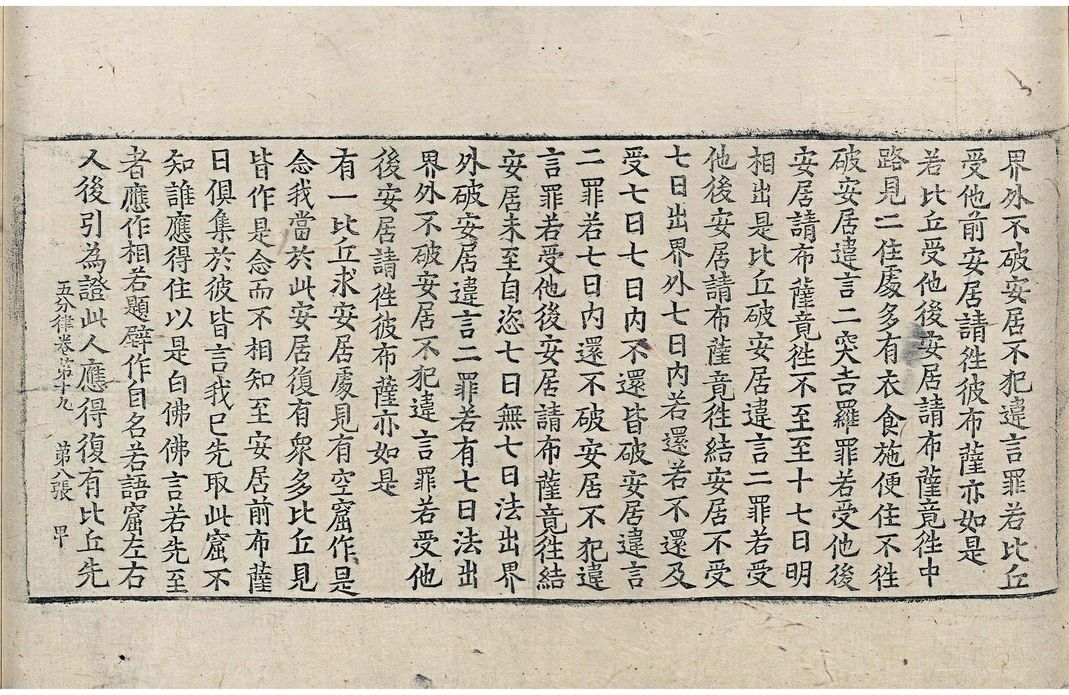 界外不破安居不犯違言罪若比丘
受他前安居請徃彼布薩亦如是
若比丘受他後安居請布薩竟徃中
路見二住處多有衣食施便住不徃
破安居違言二突吉羅罪若受他後
安居請布薩竟徃不至至十七日明
相出是比丘破安居違言二罪若受
他後安居請布薩竟徃結安居不受
七日出界外七日内若還若不還及
受七日七日内不還皆破安居違言
二罪若七日内還不破安居不犯違
言罪若受他後安居請布薩竟徃結
安居未至自恣七日無七日法出界
外破安居違言二罪若有七日法出
界外不破安居不犯違言罪若受他
後安居請徃彼布薩亦如是
有一比丘求安居處見有空窟作是
念我當於此安居復有衆多比丘見
皆作是念而不相知至安居前布薩
日俱集於彼皆言我已先取此窟不
知誰應得住以是白佛佛言若先至
者應作相若題壁作自名若語窟左右
人後引為證此人應得復有比丘先
五分律卷第十九 第八張 甲